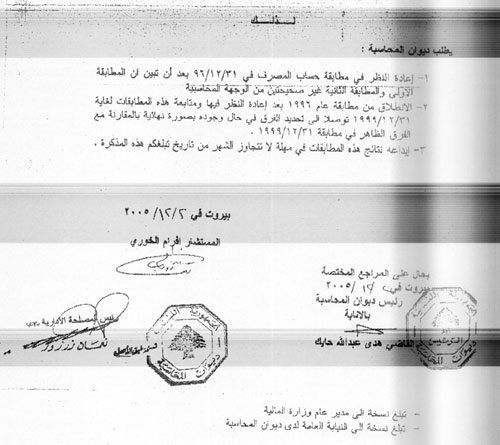 لـــذلـــك
يطلب ديوان المحاسبة :
١- إعادة النظر في مطابقة حساب المصرف في ٩٦/١٢/٣١ بعد أن تبين ان المطابقة
الأولى والمطابقة الثانية غير صحيحتين من الوجهة المحاسبية
٢- الانطلاق من مطابقة عام ١٩٩٦ بعد إعادة النظر فيها ومتابعة هذه المطابقات لغاية
١٩٩٩/١٢/٣١ توصلا الى تحديد الفرق في حال وجوده بصورة نهائية بالمقارنة مع
الفرق الظاهر في مطابقة ١٩٩٩/١٢/٣١ .
٣- إيداعه نتائج هذه المطابقات في مهلة لا تتجاوز الشهر من تاريخ تبلغكم هذه المذكرة .
بيروت في ٢٠٠٥/١٢/٢
المستشار افرام الخوري
يحال على المراجع المختصة
بيروت في ٢٠٠٥/١٢/
رئيس ديوان المحاسبة
بالانابة
القاضي هدى عبدالله حايك
رئيس المصلحة الادارية
نعمان زرزور
الجمهورية اللبنانية
ديوان المحاسبة
الرئيس
ديوان المحاسبة
- تبلغ نسخة الى مدير عام وزارة المالية
- تبلغ نسخة الى النيابة العامة لدى ديوان المحاسبة